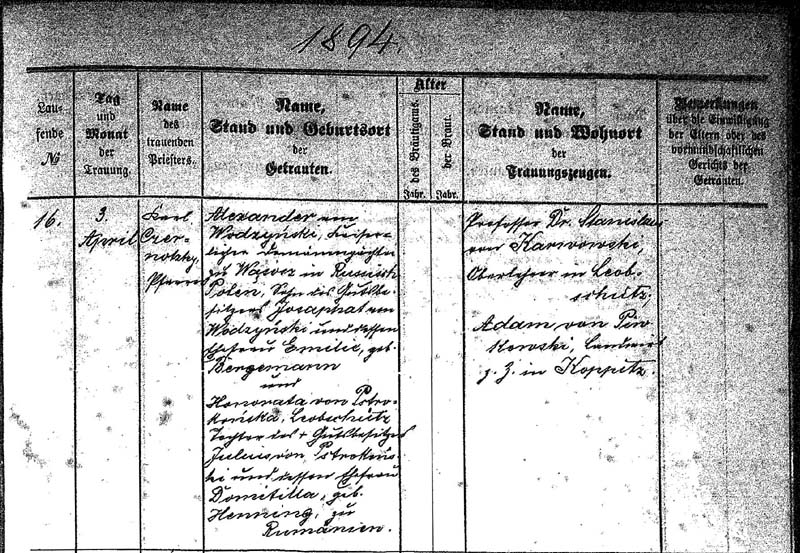 1894.
Lau-
fende
No
Tag
und
Monat
der
Trauung.
Name
des
trauenden
Priesters.
Name,
Stand und Geburtsort
der
Getrauten.
Alter
des Bräutigams.
Jahr.
der Braut.
Jahr.
Name,
Stand und Wohnort
der
Trauungszeugen.
Bemerkungen
über die Einwilligung
der Eltern oder des
vormundschaftlichen
Gerichts der
Getrauten.
16.
3.
April
Karl
Czer-
notzky,
Pfarrer
Alexander von
Wodzyński, Kaiser-
licher Domänenpächter
zu Wąwoz in Russisch
Polen, Sohn des Gutsbe-
sitzers Josaphat von
Wodzyński und dessen
Ehefrau Emilie, geb.
Bergemann
und
Honorata von Pstro-
końska, Leobschütz
Tochter des + Gutsbesitzers
Julius von Pstrokoński
ki und dessen Ehefrau
Domitilla, geb.
Henning, zu
Rumänien.
Professor Dr. Stanislaus
von Karwowski,
Oberlehrer in Leob-
schütz;
Adam von
Landwirt
z. Z. in Koppitz.